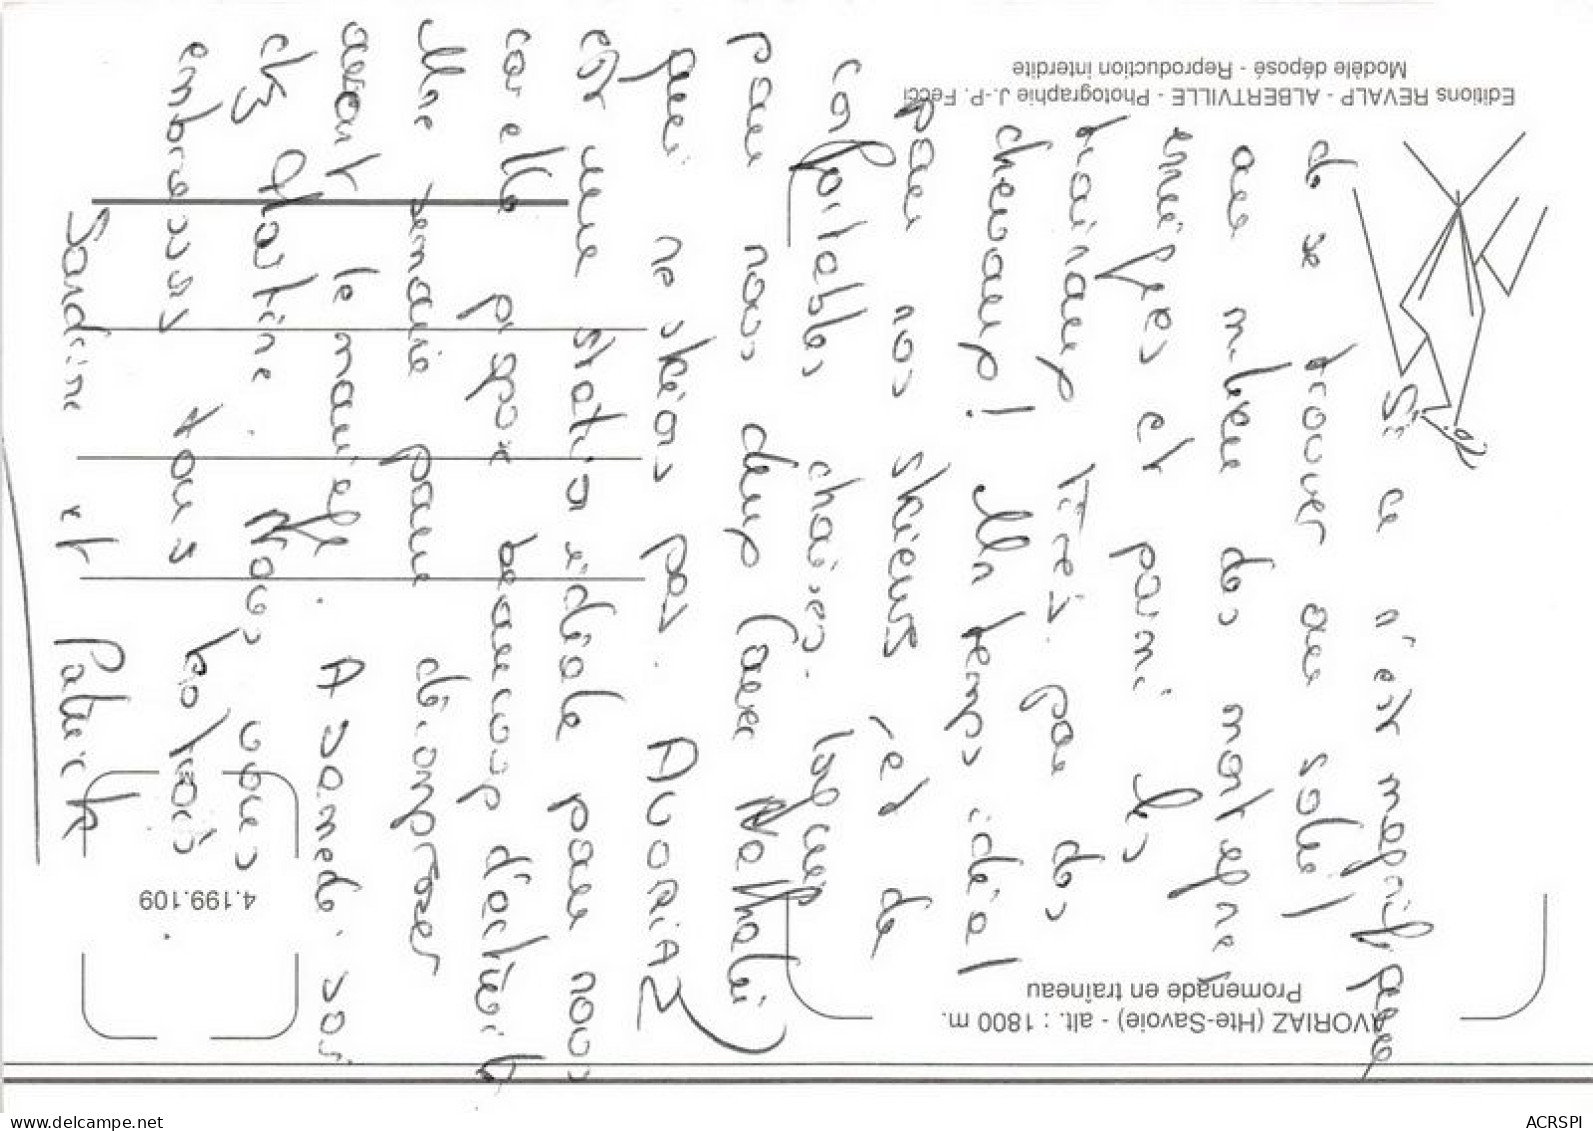 Si ce n'est magnifique
de se trouver au soleil
au milieu des montagnes
enneigées et parmi les
traineaux tirés par des
chevaux! Un temps idéal
pour nos skieurs et de
confortables chaises longues
pour nous deux (avec Nathalie)
qui ne skions pas. AVORIAZ
est une station idéale pour nous
car elle propose beaucoup d'activités
Une semaine pour décompresser
avant le mariage. A samedi soir
chez Martine. Nous vous
embrassons tous
Sandrine et Patrick
AVORIAZ (Hte-Savoie) - alt. : 1800 m.
Promenade en traîneau
4.199.109
Editions REVALP - ALBERTVILLE - Photographie J.-P. Fecci
Modèle déposé - Reproduction interdite
www.delcampe.net
ACRSPI